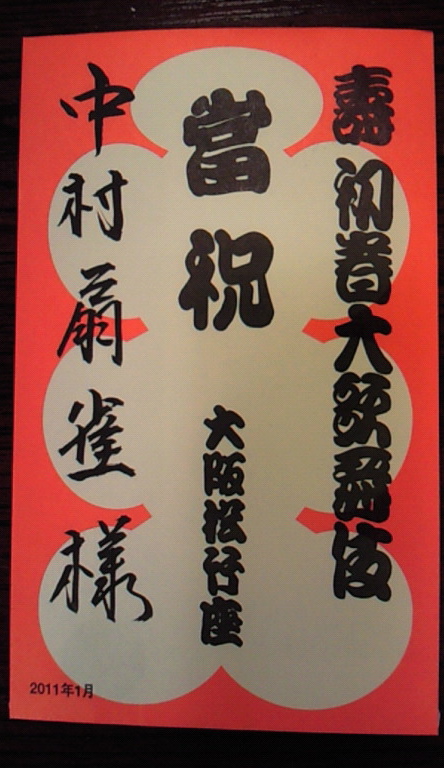 壽初春大歌舞伎
當祝
大阪松竹座
中村扇雀様
2011年1月